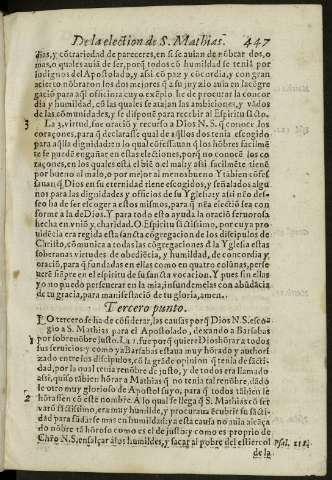 De la election de S. Mathias. 447
dias, y cōtrariedad de pareceres, en si se auian de nōbrar dos, o
mas, o quales auiā de ser, porq̄ todos cō humildad se teniā por
indignos del Apostolado, y assi cō paz y cōcordia, y con gran
acierto nōbraron los dos mejores q̄ a su juyzio auia en la cōgre
gaciō para aq̄l oficio
dia y humildad, cō las quales se atajan las ambiciones, y vādos
de las comunidades, y se disponē para recebir al Espiritu sācto.
3 La 3. virtud, fue oraciō y recurso a Dios N.S. q̄ conoce los
coraçones, para q̄ declarasse qual de aq̄llos dos tenia escogido
para aq̄lla dignidad: en lo qual cōfessauan q̄ los hōbres facilmē
te se puedē engañar en estas elecciones, porq̄ no conocē los co
raçones, en los quales està el biē o el mal y assi facilmēte tienē
por bueno al malo, o por mejor al menos bueno. Y tābien cōfes
sauan q̄ Dios en su eternidad tiene escogidos, y señalados algu
nos para las dignidades y oficios de su Yglesia: y assi nēo def-
seo ha de ser escoger a estos mismos, para q̄ nēa electiō sea con
forme a la de Dios. Y para todo esto ayuda la oraciō feruorosa
hecha en vniō y charidad. O Espiritu sāctissimo, por cuya pro
uidēcia era regida esta sancta cōgregacion de los discipulos de
Christo, cōmunica a todas las cōgregaciones de la Yglesia estas
soberanas virtudes de obediēcia, y humildad, de concordia y
oraciō, para q̄ fundadas en ellas como en quatro colūnas, perse
uerē siēpre en el espiritu de su sancta vocacion. Y pues sin ellas
yo no puedo perseuerar en la mia, infundemelas con abūdācia
de tu gracia, para manifestaciō de tu gloria, amen.
Tercero punto.
LO tercero se ha de cōsiderar, las causas porq̄ Dios N.S. esco
giò a S. Mathias para el Apostolado, dexando a Barsabas
1 por sobrenōbre justo. La 1. fue porq̄ quiere Dios hōrar a todos
sus seruicios: y como ya Barsabas estaua muy hōrado y authori
zado entre los discipulos, cō la grāde opinion q̄ tenia de sācti-
dad, por la qual tenia renōbre de justo, y de todos era llamado
assi, quiso tābiē hōrar a Mathias q̄ no tenia tal renōbre, dādo
le otro muy glorioso de Apostol suyo, para q̄ todos tābiē le
2 hōrassen cō este nombre. A lo qual se llega q̄ S. Mathias cō ser
varō sāctissimo, era muy humilde, y procuraua ēcubrir su sācti
dad para q̄
nōbre tā hōroso como es el de justo: y como es proprio de
Chrō N.S. ensalçar a los humildes, y sacar al pobre del estiercol Psal. 112.
de la